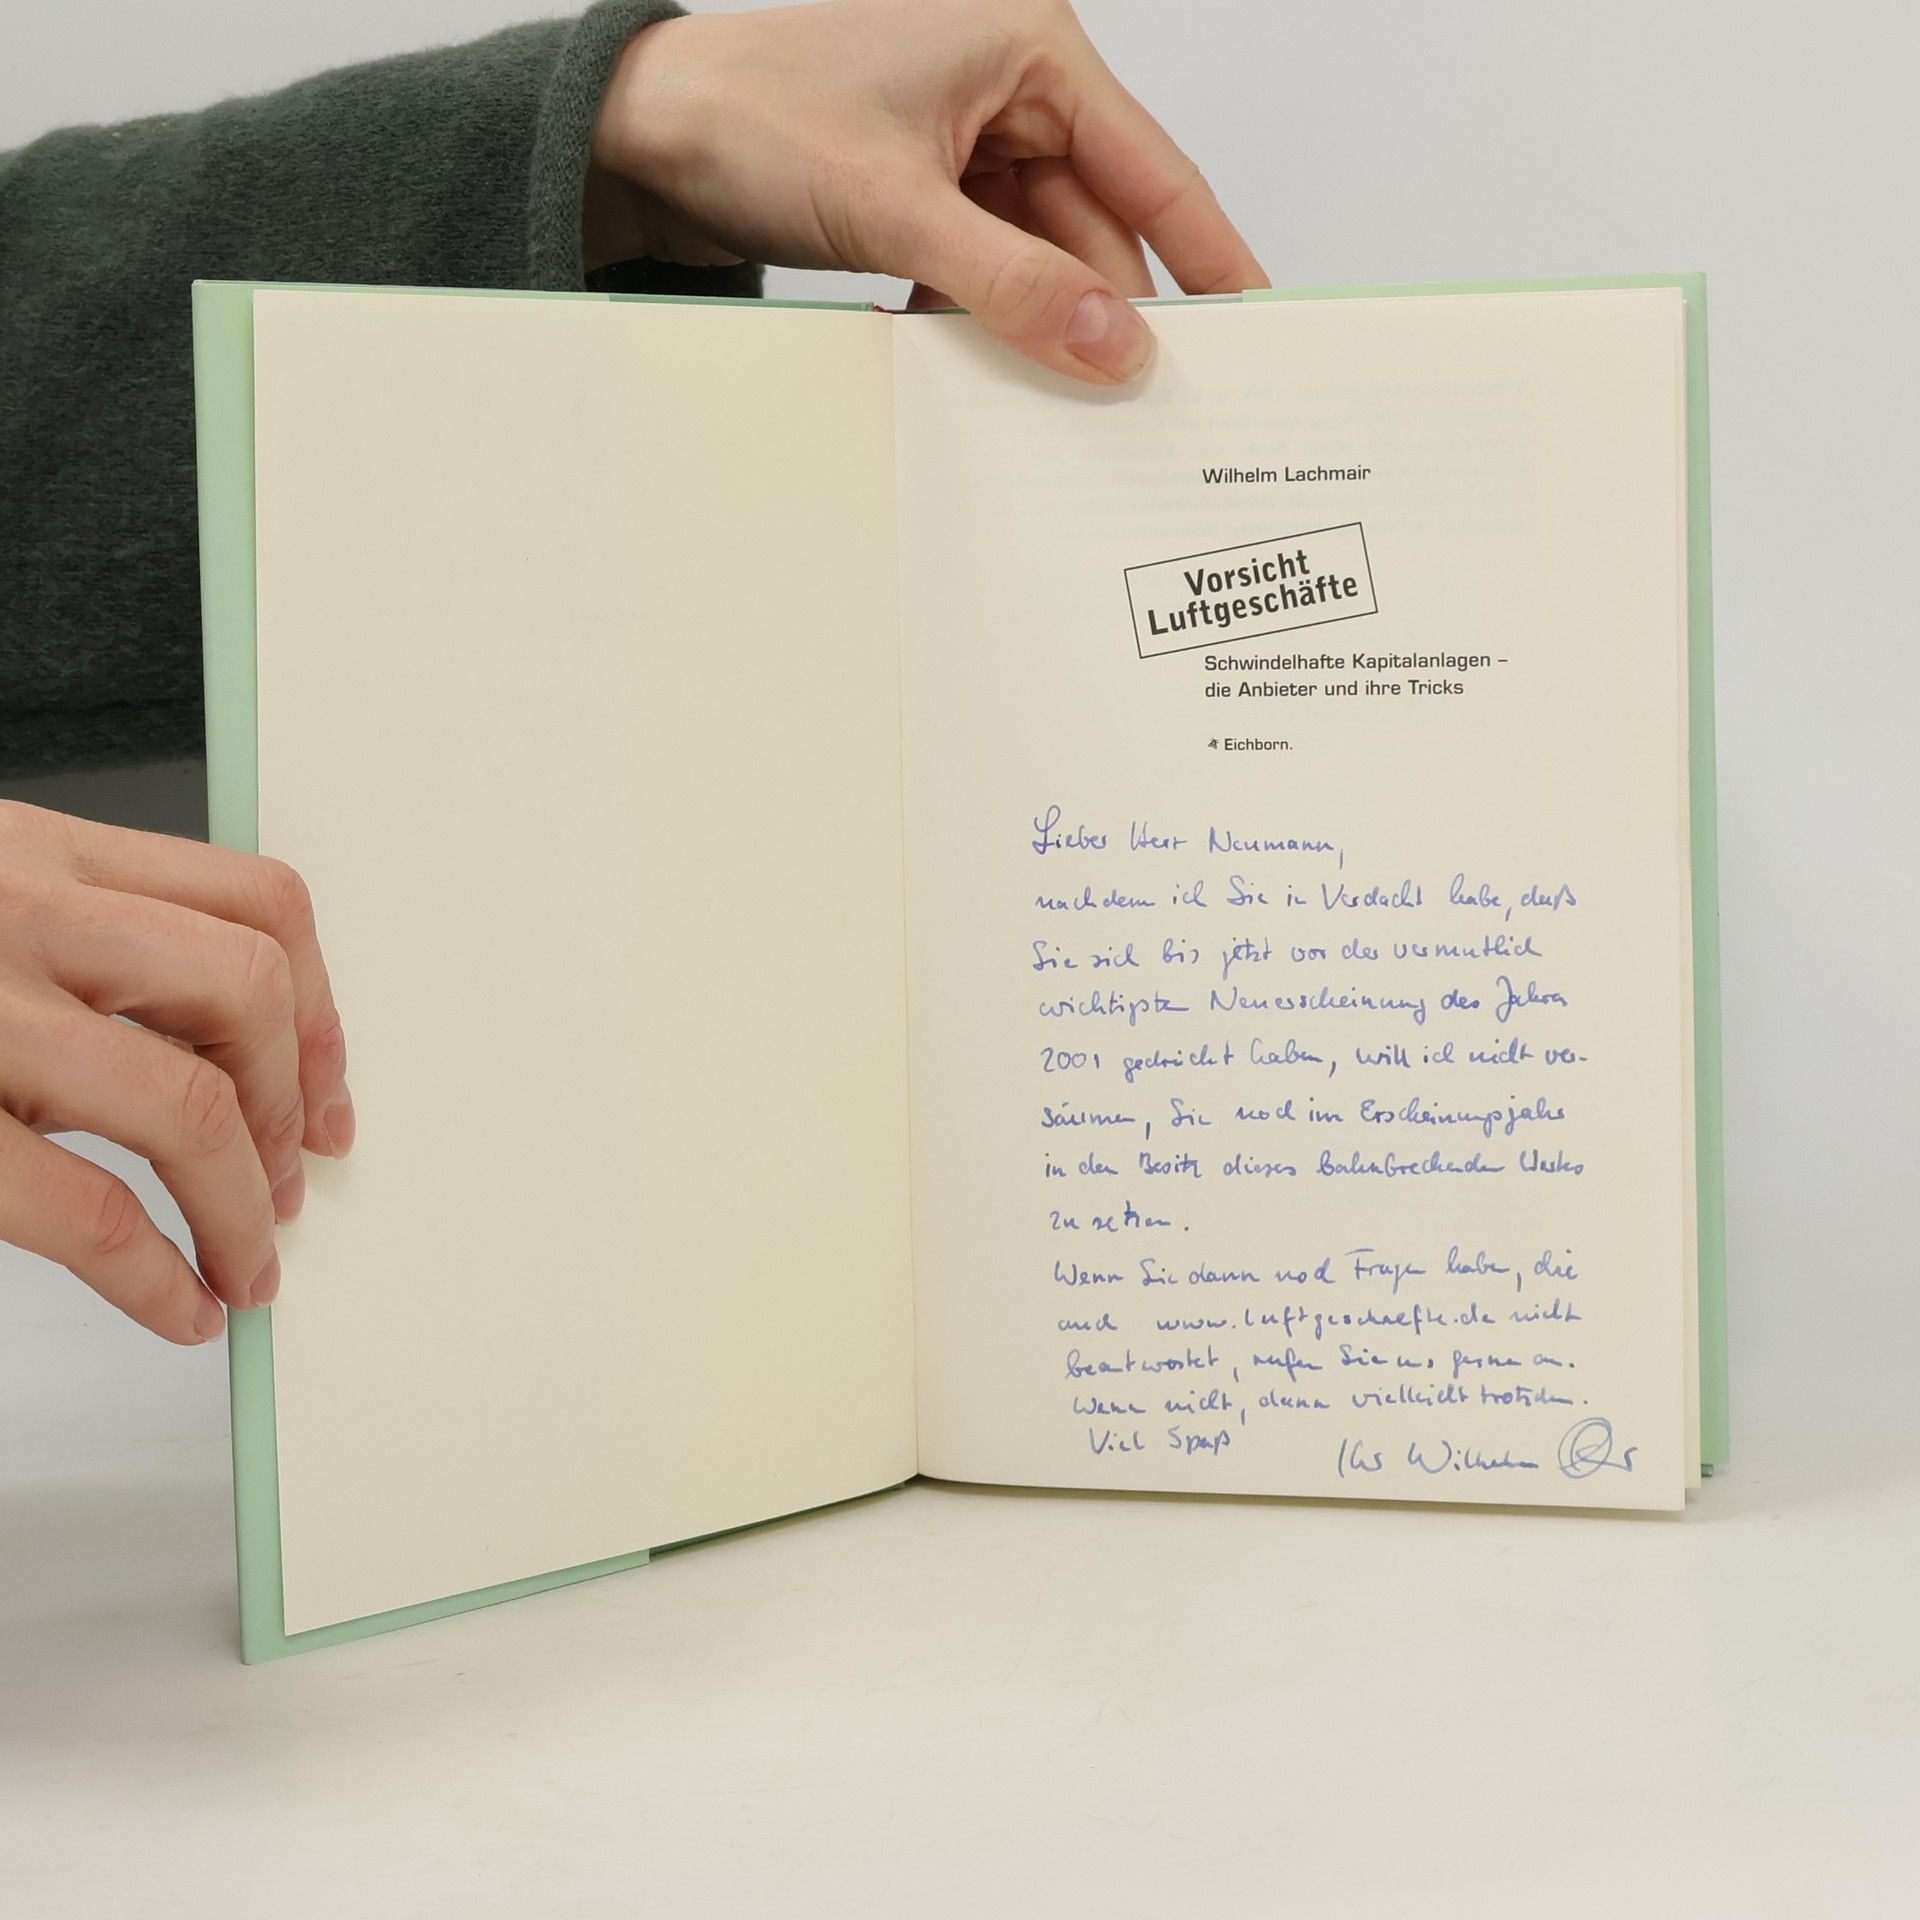 Wilhelm Lachmair
Vorsicht
Luftgeschäfte
Schwindelhafte Kapitalanlagen –
die Anbieter und ihre Tricks
Eichborn.
Lieber Herr Neumann,
nachdem ich Sie in Verdacht habe, daß
Sie sich bis jetzt vor der vermutlich
wichtigsten Neuerscheinung des Jahres
2001 gedrückt haben, will ich nicht ver-
säumen, Sie noch im Erscheinungsjahr
in den Besitz dieses bahnbrechenden Werkes
zu setzen.
Wenn Sie dann noch Fragen haben, die
auch www.luftgeschaefte.de nicht
beantwortet, rufen Sie uns gerne an.
Wenn nicht, dann vielleicht trotzdem.
Viel Spaß
Ihr Wilhelm